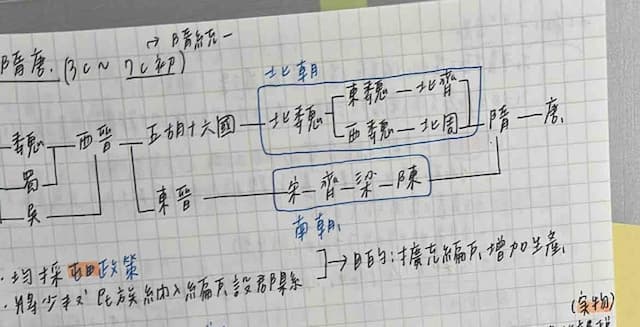 → 隋統一
隋唐. (3C ~ 7C初)
北朝
東魏 — 北齊
魏 西晉 — 五胡十六國 — 北魏 隋 — 唐
西魏 — 北周
蜀
吳 東晉 — 宋 — 齊 — 梁 — 陳
南朝
· 均採屯田政策
→ 目的: 擴充編戶, 增加生產
· 將少數民族納入編戶, 設郡縣
(實物)